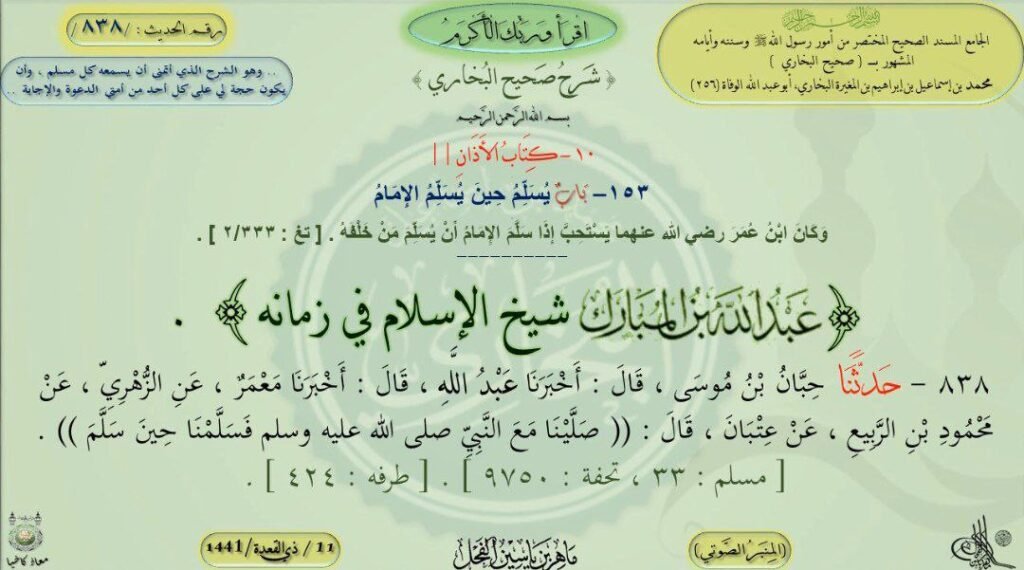 رقم الحديث : /٨٣٨/
اقرأ وربك الأكرم
.. وهو الشرح الذي أتمنى أن يسمعه كل مسلم ، وأن
يكون حجة لي على كل أحد من أمتي الدعوة والإجابة ..
الجامع المسند الصحيح المختصر من أمور رسول الله ﷺ وسننه وأيامه
المشهور بـ ( صحيح البخاري )
محمد بن إسماعيل بن إبراهيم بن المغيرة البخاري، أبو عبد الله الوفاة (٢٥٦)
﴿ شَرْحُ صَحِيحِ البُخَارِي ﴾
بسم الله الرحمن الرحيم
١٠- كِتَابُ الأَذَانِ ||
١٥٣- بَابٌ يُسَلِّمُ حِينَ يُسَلِّمُ الإِمَامُ
وَكَانَ ابْنُ عُمَرَ رضي الله عنهما يَسْتَحِبُّ إِذَا سَلَّمَ الإِمَامُ أَنْ يُسَلِّمَ مَنْ خَلْفَهُ . [ تغ : ٢/٣٣٣ ] .
----------
﴿ عَبْدُ اللَّهِ بْنُ المُبَارَكِ شيخ الإسلام في زمانه ﴾ .
٨٣٨ - حَدَّثَنَا حِبَّانُ بْنُ مُوسَى ، قَالَ : أَخْبَرَنَا عَبْدُ اللَّهِ ، قَالَ : أَخْبَرَنَا مَعْمَرٌ ، عَنِ الزُّهْرِيِّ ، عَنْ
مَحْمُودِ بْنِ الرَّبِيعِ ، عَنْ عِتْبَانَ ، قَالَ : (( صَلَّيْنَا مَعَ النَّبِيِّ صلى الله عليه وسلم فَسَلَّمْنَا حِينَ سَلَّمَ )) .
[ مسلم : ٣٣ ، تحفة : ٩٧٥٠ ] . [ طرفه : ٤٢٤ ] .
(المنبر الصَّوتي)
ماهر بن ياسين الفحل
11 / ذي القعدة/ 1441